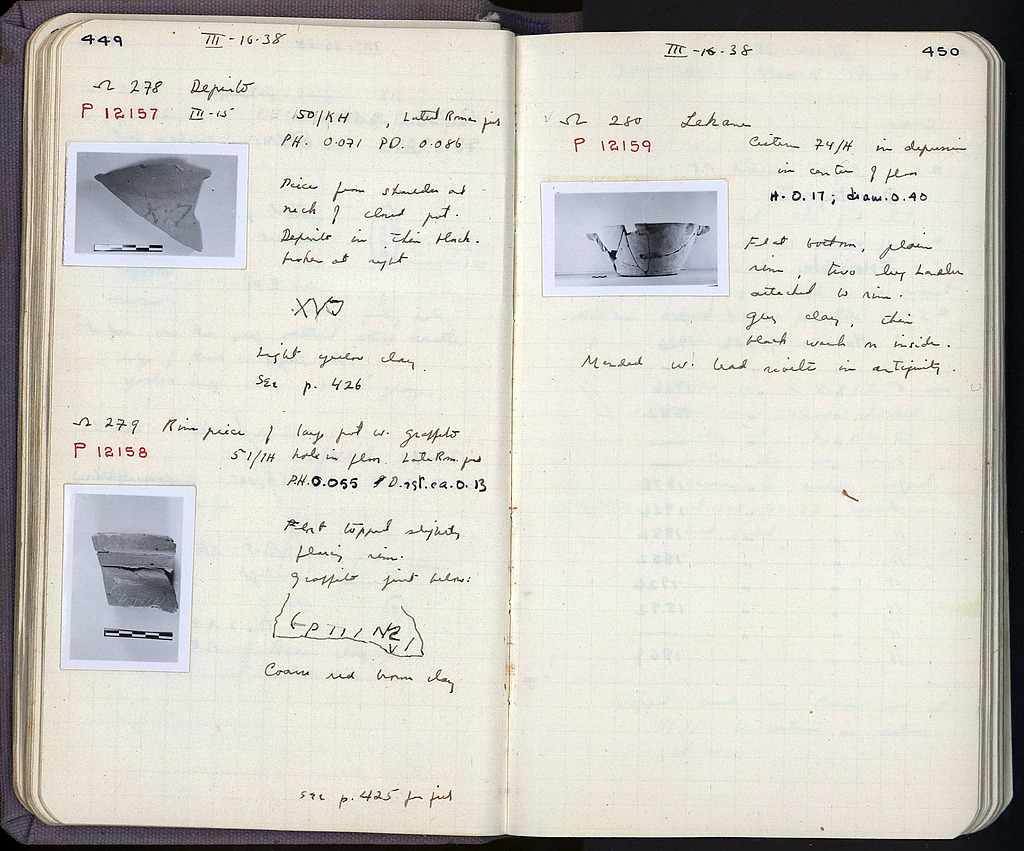 449
III-16-38
Ω 278 Dipinto
P 12157 III-15 50/KH, Later Roman fill
PH. 0.071 PD. 0.086
Piece from shoulder and
neck of closed pot.
Dipinto in thin black.
broken at right
XV
Light yellow clay.
See p. 426
Ω 279 Rim piece of large pot w. graffito
P 12158 51/ΙΗ hole in floor. Late Rom. fill
P.H. 0.055 D. est. ca. 0.13
Flat topped slightly
flaring rim.
graffito just below:
Coarse red brown clay
see p. 425 for fill
III-16-38
450
Ω 280 Lekane
P 12159 Cistern 74/H in depression
in center of floor
H. 0.17; diam. 0.40
Flat bottom, plain
rim, two lug handles
attached to rim.
Grey clay, thin
black wash on inside.
Mended w. lead rivets in antiquity.